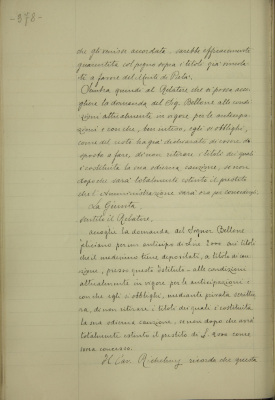 -378-
che gli venisse accordata - sarebbe efficacemente
guarentita col pegno sopra i titoli già vincola-
ti a favore del Monte di Pietà;
Sembra quindi al Relatore che si possa acco-
gliere la domanda del Sig. Bellone alle condi-
zioni attualmente in vigore per le anticipa-
zioni e con che, ben inteso, egli si obblighi,
come del resto ha già dichiarato di essere di-
sposto a fare, di non ritirare i titoli dei quali
è costituita la sua odierna cauzione, se non
dopo che sarà totalmente estinto il prestito
che l'Amministrazione sarà ora per concedergli.
La Giunta,
sentito il Relatore,
accoglie la domanda del Signor Bellone
Feliciano per un anticipo di Lire 2000 sui titoli
che il medesimo tiene depositati, a titolo di cau-
zione, presso questo Istituto - alle condizioni
attualmente in vigore per le anticipazioni e
con che egli si obblighi, mediante privata scrittu-
ra, di non ritirare i titoli dei quali è costituita
la sua odierna cauzione, se non dopo che avrà
totalmente estinto il prestito di L. 2000 come
sopra concesso.
Il Cav. ricorda che questa